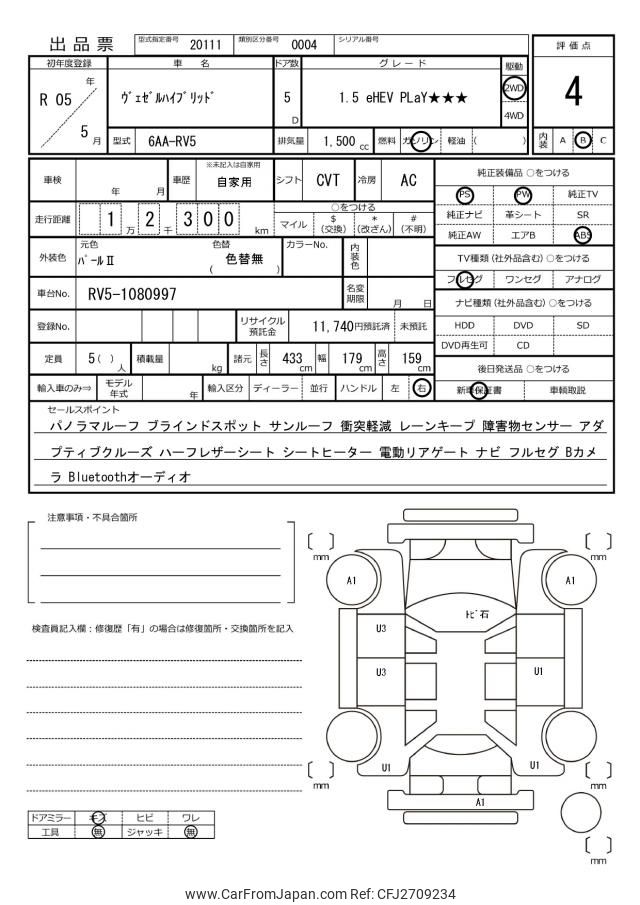 出品票
型式指定番号 20111 類別区分番号 0004 シリアル番号
評価点
初年度登録 車名 ドア数 グレード 駆動
R 05 年 5 月
ヴェゼルハイブリッド
5 D
1.5 eHEV PLaY★★★
2WD
4WD
4
型式 6AA-RV5 排気量 1,500 cc 燃料 ガソリン 軽油 ( )
内装 A B C
車検 年 月 車歴 ※未記入は自家用 自家用 シフト CVT 冷房 AC
純正装備品 ○をつける
PS PW 純正TV
純正ナビ 革シート SR
純正AW エアB ABS
走行距離 1 万 2 千 3 0 0 km
○をつける
マイル $ (交換) * (改ざん) # (不明)
外装色 元色 パールⅡ 色替 ( 色替無 ) カラーNo. 内装色
TV種類 (社外品含む) ○をつける
フルセグ ワンセグ アナログ
車台No. RV5-1080997 名変期限 月 日
ナビ種類 (社外品含む) ○をつける
HDD DVD SD
DVD再生可 CD
登録No. リサイクル預託金 11,740円預託済 未預託
定員 5 ( ) 人 積載量 kg 諸元 長さ 433 cm 幅 179 cm 高さ 159 cm
後日発送品 ○をつける
新車保証書 車輌取説
輸入車のみ⇒ モデル年式 年 輸入区分 ディーラー 並行 ハンドル 左 右
セールスポイント
パノラマルーフ ブラインドスポット サンルーフ 衝突軽減 レーンキープ 障害物センサー アダ
プティブクルーズ ハーフレザーシート シートヒーター 電動リアゲート ナビ フルセグ Bカメ
ラ Bluetoothオーディオ
注意事項・不具合箇所
検査員記入欄：修復歴「有」の場合は修復箇所・交換箇所を記入
mm
mm
A1
A1
トビ石
U3
U3
U1
U1
U1
A1
mm
mm
mm
ドアミラー キズ ヒビ ワレ
工具 無 ジャッキ 無
www.CarFromJapan.com Ref: CFJ2709234